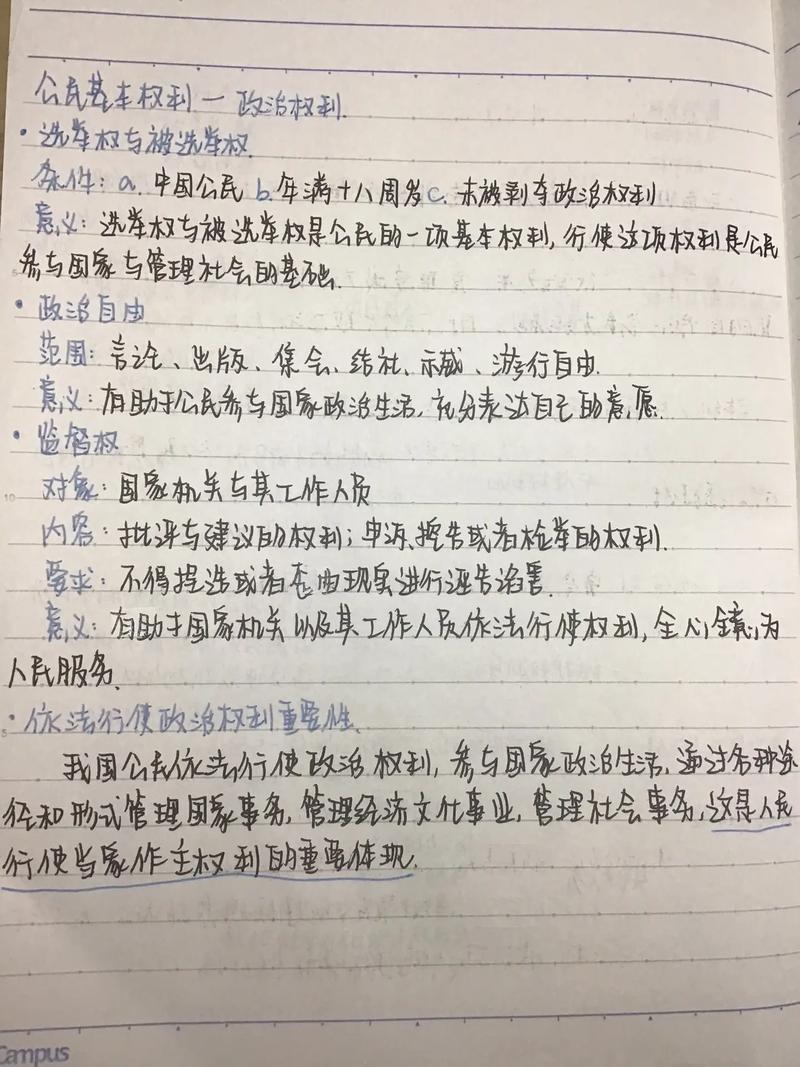 公民基本权利一政治权利.
·选举权与被选举权.
条件:a.中国公民 b.年满十八周岁c.未被剥夺政治权利
意义:选举权与被选举权是公民的一项基本权利,行使这项权利是公民
参与国家与管理社会的基础.
·政治自由
范围:言论、出版、集会、结社、示威、游行自由.
意义:有助于公民参与国家政治生活,充分表达自己的意愿.
·监督权
对象:国家机关与其工作人员
10
内容:批评与建议的权利;申诉、控告或者检举的权利.
要求:不得捏造或者歪曲现实进行诬告谄害.
意义:有助于国家机关以及其工作人员依法行使权利,全心全意为
人民服务.
·依法行使政治权利重要性.
我国公民依法行使政治权利,参与国家政治生活,通过各种途
径和形式管理国家事务,管理经济文化事业,管理社会事务,这是人民
行使当家作主权利的重要体现.
Campus